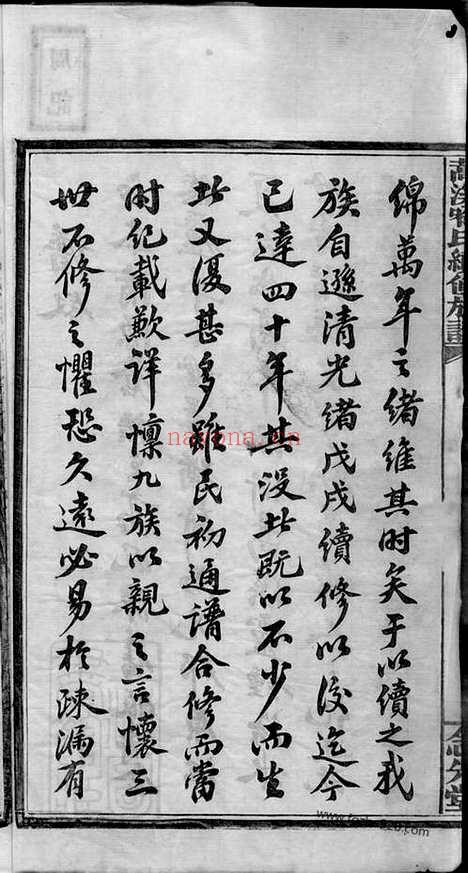 綿萬年之緒維其時矣于以續之我
族自遜清光緒戊戌續修以後迄今
已達四十年其没者既以不少而生
者又復甚多雖民初通譜合修而當
時紀載歉詳懍九族以親之言懷三
世不修之懼恐久遠必易於疎漏有
周記
氏續修族譜
堂
nayona.cn